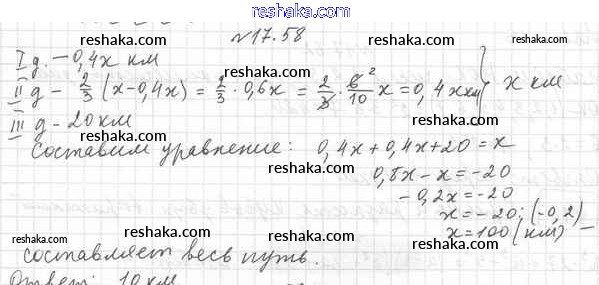 reshaka.com
№17.58
reshaka.com reshaka.com reshaka.com
I д. – 0,4x км
II д – 2/3 (x-0,4x) = 2/3 · 0,6x = 2/3 · 6²/10 x = 0,4x км } x км
reshaka.com
III д – 20 км
reshaka.com reshaka.com
Составим уравнение: 0,4x+0,4x+20=x
reshaka.com
0,8x-x=-20
-0,2x=-20
reshaka.com
x=-20:(-0,2)
reshaka.com reshaka.com
x=100(км) –
составляет весь путь.
reshaka.com
Ответ: 10 км
reshaka.com